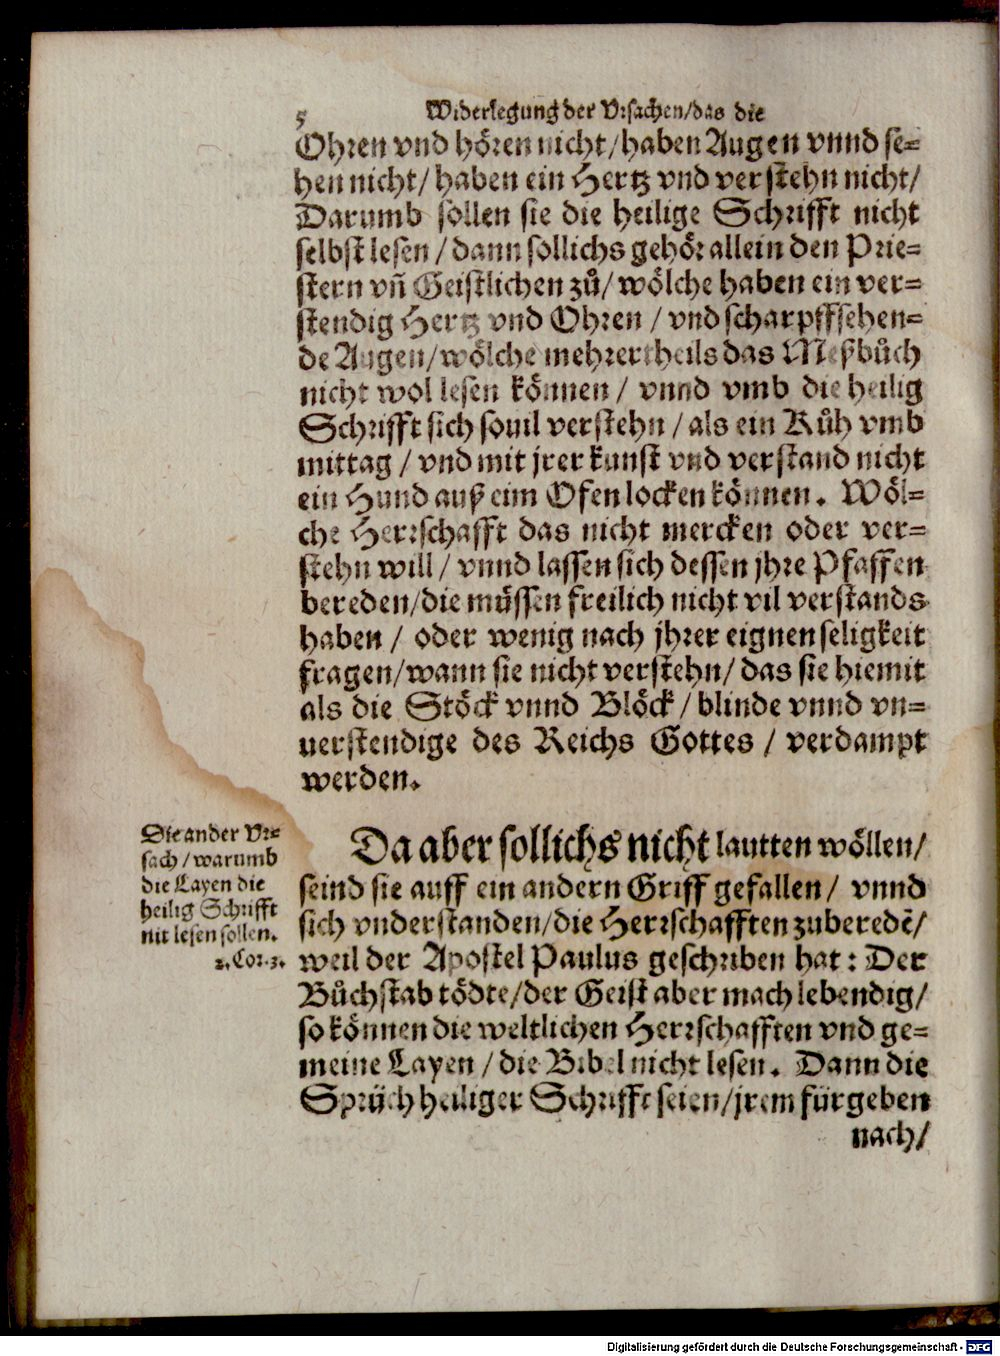 5
Widerlegung der Vrsachen/das die
Ohren vnd hören nicht/haben Augen vnnd se=
hen nicht/ haben ein Hertz vnd verstehn nicht/
Darumb sollen sie die heilige Schrifft nicht
selbst lesen / dann sollichs gehör allein den Prie=
stern vñ Geistlichen zů/ wölche haben ein ver=
stendig Hertz vnd Ohren / vnd scharpffsehen=
de Augen/wölche mehrertheils das Meßbůch
nicht wol lesen können / vnnd vmb die heilig
Schrifft sich souil verstehn / als ein Kůh vmb
mittag / vnd mit jrer kunst vnd verstand nicht
ein Hund auß eim Ofen locken können. Wöl=
che Herrschafft das nicht mercken oder ver=
stehn will / vnnd lassen sich dessen jhre Pfaffen
bereden/die müssen freilich nicht vil verstands
haben / oder wenig nach jhrer eignen seligkeit
fragen/wann sie nicht verstehn/ das sie hiemit
als die Stöck vnnd Blöck / blinde vnnd vn=
uerstendige des Reichs Gottes / verdampt
werden.
Die ander Vr=
sach / warumb
die Layen die
heilig Schrifft
nit lesen sollen.
2. Cor. 3.
Da aber sollichs nicht lautten wöllen/
seind sie auff ein andern Griff gefallen / vnnd
sich vnderstanden/die Herrschafften zuberedē/
weil der Apostel Paulus geschriben hat: Der
Bůchstab tödte/der Geist aber mach lebendig/
so können die weltlichen Herrschafften vnd ge=
meine Layen / die Bibel nicht lesen. Dann die
Sprüch heiliger Schrifft seien/jrem fürgeben
nach/
Digitalisierung gefördert durch die Deutsche Forschungsgemeinschaft - DFG